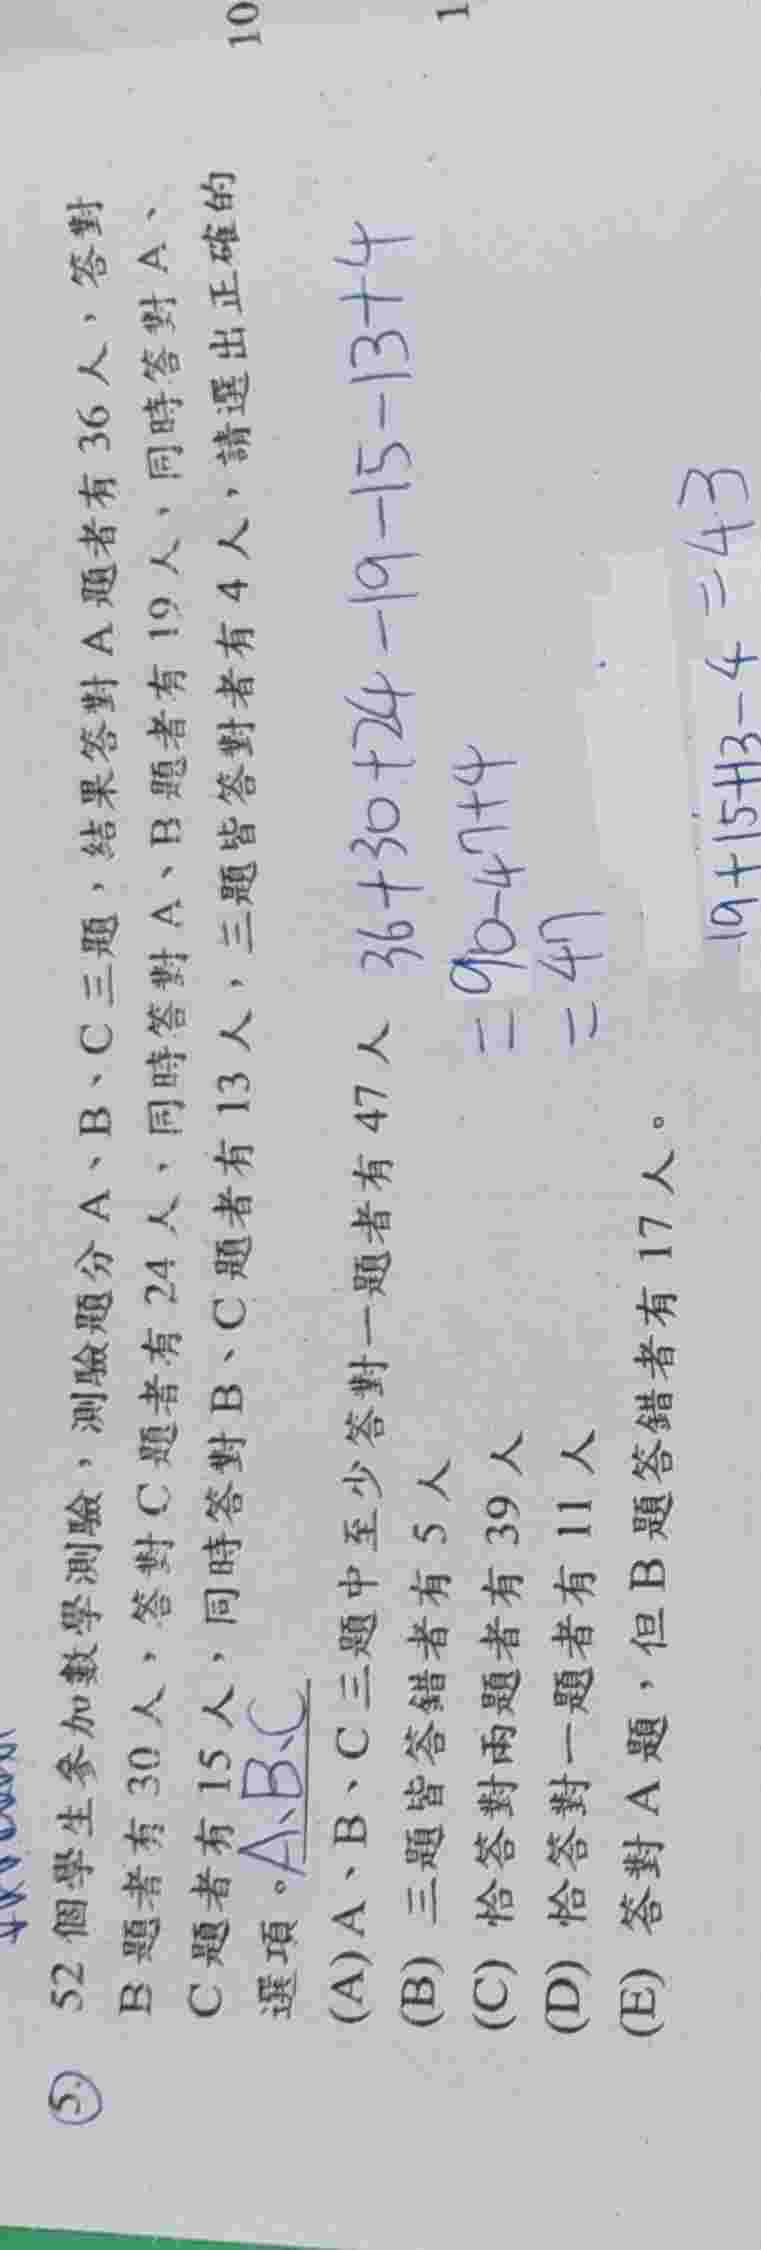 5. 52 個學生參加數學測驗，測驗題分 A、B、C 三題，結果答對 A 題者有 36 人，答對
B 題者有 30 人，答對 C 題者有 24 人，同時答對 A、B 題者有 19 人，同時答對 A、
C 題者有 15 人，同時答對 B、C 題者有 13 人，三題皆答對者有 4 人，請選出正確的
選項。A、B、C
(A) A、B、C 三題中至少答對一題者有 47 人 36+30+24-19-15-13+4
(B) 三題皆答錯者有 5 人 =90-47+4
(C) 恰答對兩題者有 39 人 =47
(D) 恰答對一題者有 11 人
(E) 答對 A 題，但 B 題答錯者有 17 人。
19+15+13-4=43
10
1